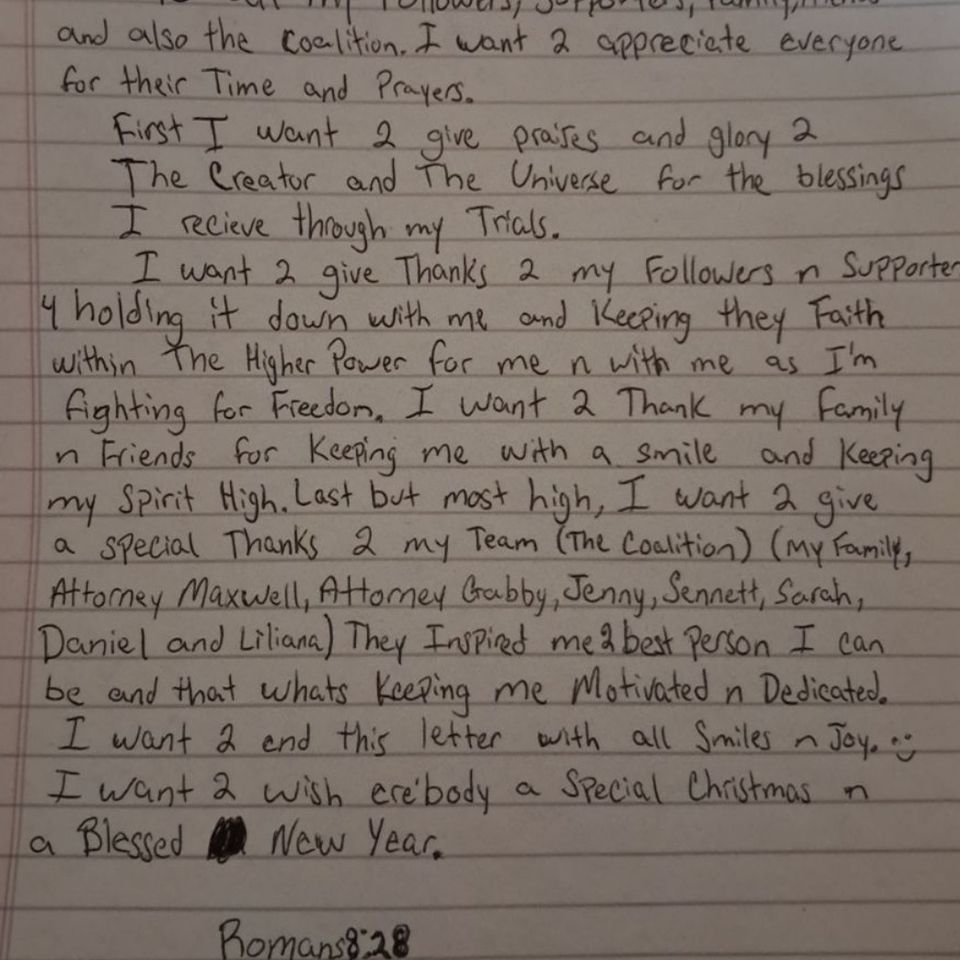 my Followers, Supporters, Family,
and also the Coalition. I want 2 appreciate everyone
for their Time and Prayers.
First I want 2 give praises and glory 2
The Creator and The Universe for the blessings
I recieve through my Trials.
I want 2 give Thanks 2 my Followers n Supporter
4 holding it down with me and Keeping they Faith
within The Higher Power for me n with me as I'm
fighting for Freedom. I want 2 Thank my Family
n Friends for Keeping me with a smile and Keeping
my Spirit High. Last but most high, I want 2 give
a special Thanks 2 my Team (The Coalition) (My Family,
Attorney Maxwell, Attorney Gabby, Jenny, Sennett, Sarah,
Daniel and Liliana) They Inspired me 2 best Person I can
be and that whats Keeping me Motivated n Dedicated.
I want 2 end this letter with all Smiles n Joy. :)
I want 2 wish ere'body a Special Christmas n
a Blessed New Year.
Romans 8:28